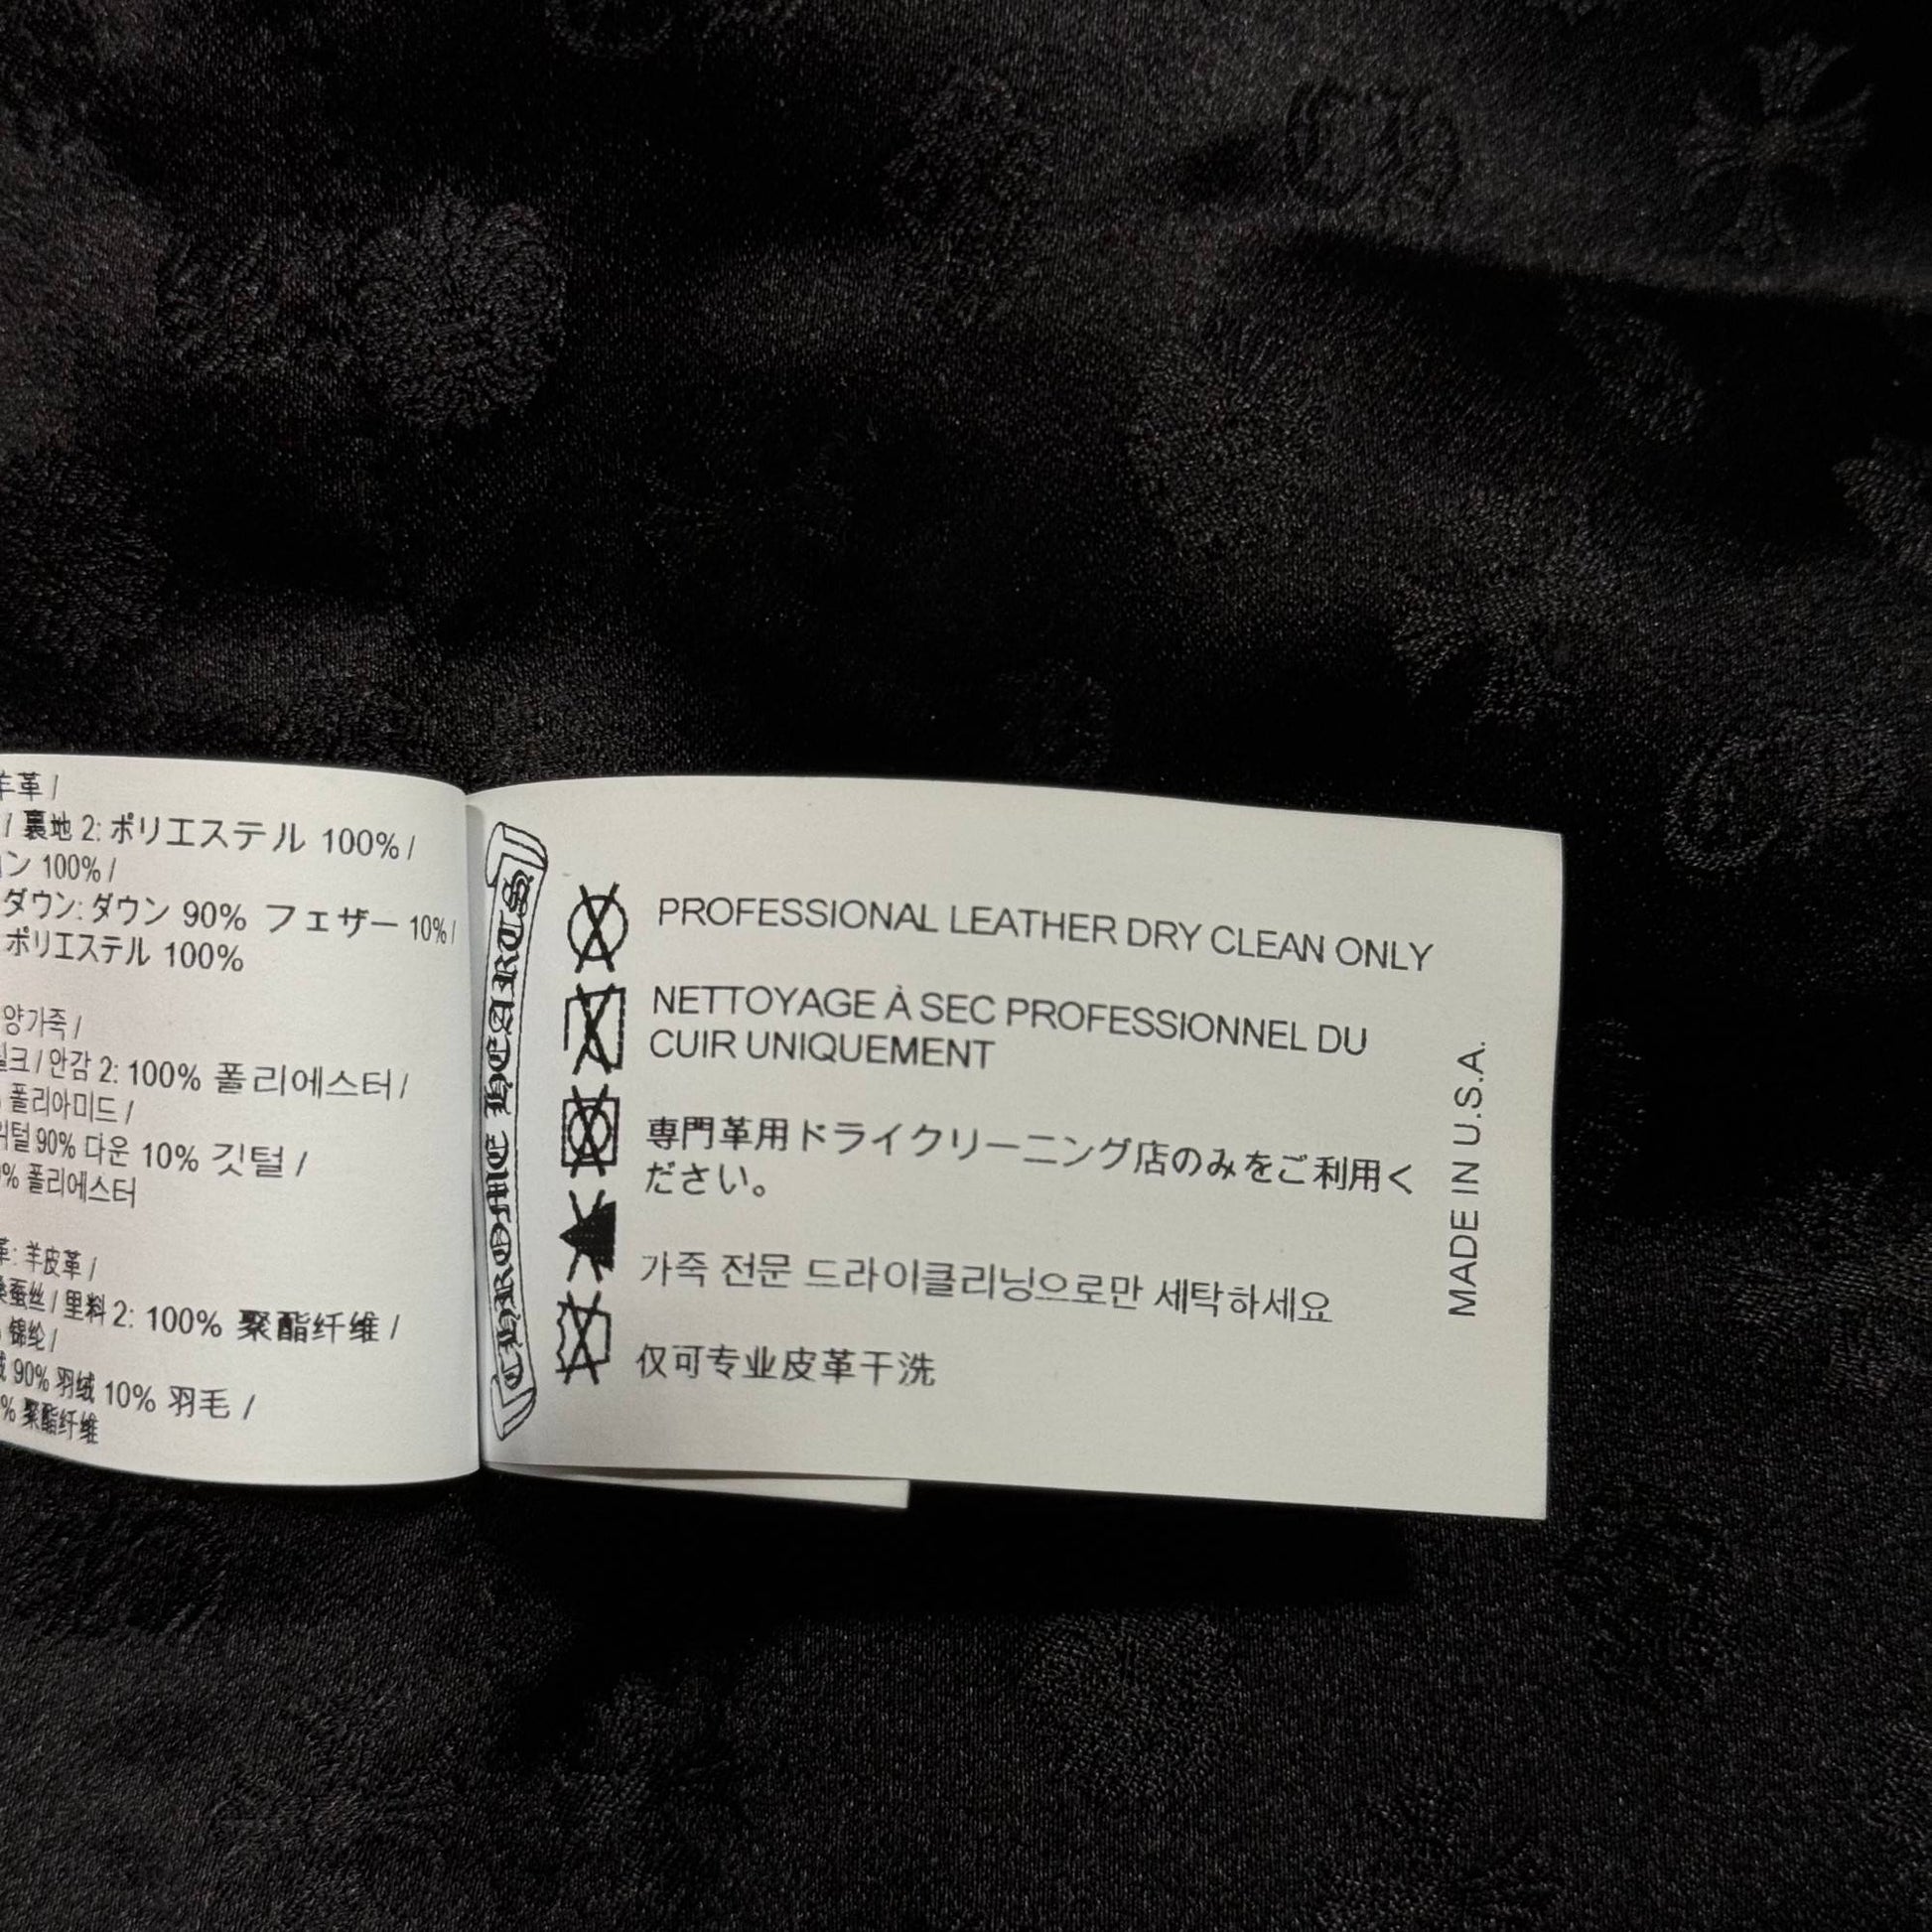 羊革 /
/ 裏地 2: ポリエステル 100% /
ン 100% /
ダウン: ダウン 90% フェザー 10% /
ポリエステル 100%
양가죽 /
실크 / 안감 2: 100% 폴리에스터 /
폴리아미드 /
90% 다운 10% 깃털 /
% 폴리에스터
革: 羊皮革 /
蚕丝 / 里料 2: 100% 聚酯纤维 /
锦纶 /
绒 90% 羽绒 10% 羽毛 /
% 聚酯纤维
CHROME HEARTS
PROFESSIONAL LEATHER DRY CLEAN ONLY
NETTOYAGE À SEC PROFESSIONNEL DU
CUIR UNIQUEMENT
専門革用ドライクリーニング店のみをご利用く
ださい。
가죽 전문 드라이클리닝으로만 세탁하세요
仅可专业皮革干洗
MADE IN U.S.A.